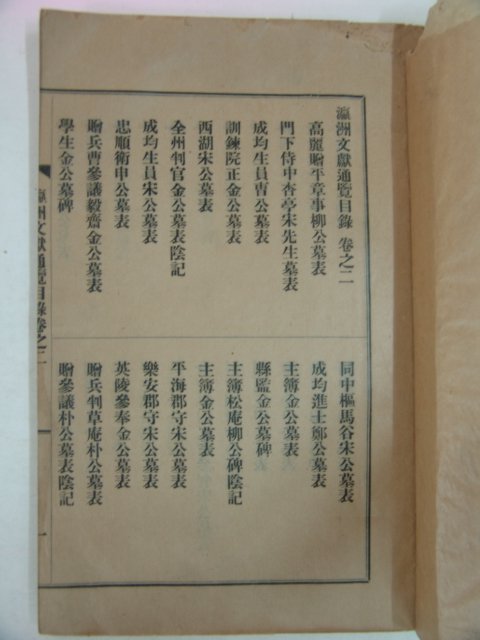 瀛洲文獻通覽目錄 卷之二
高麗贈平章事柳公墓表
門下侍中杏亭宋先生墓表
成均生員曺公墓表
訓鍊院正金公墓表
西湖宋公墓表
全州判官金公墓表陰記
成均生員宋公墓表
忠順衛申公墓表
贈兵曹參議毅齋金公墓表
學生金公墓碑
同中樞馬谷宋公墓表
成均進士鄭公墓表
主簿金公墓表
縣監金公墓碑
主簿松庵柳公碑陰記
主簿金公墓表
平海郡守宋公墓表
樂安郡守宋公墓表
英陵參奉金公墓表
贈兵判草庵朴公墓表
贈參議朴公墓表陰記
瀛洲文獻通覽目錄卷之二
一